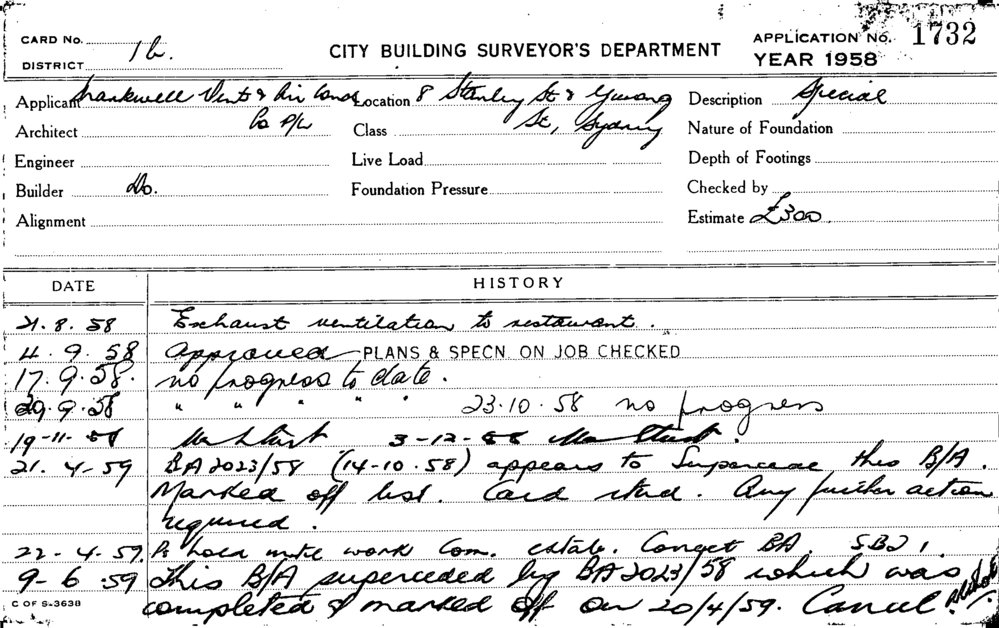 CARD No. CITY BUILDING SURVEYOR'S DEPARTMENT APPLICATION No. 1732
DISTRICT 1b. YEAR 1958
Applicant Vent & Air Cond Location 8 Stanley St & Yurong Description Special
Architect Co P/L Class St, Sydney Nature of Foundation
Engineer Live Load Depth of Footings
Builder Do. Foundation Pressure Checked by
Alignment Estimate £300
DATE HISTORY
21. 8. 58 Exhaust ventilation to restaurant.
4. 9. 58 Approved PLANS & SPECN. ON JOB CHECKED
17. 9. 58. no progress to date.
29. 9. 58 " " " " " 23. 10. 58 no progress
19-11-58 3-12-58
21. 4-59 BA 2023/58 (14-10. 58) appears to Supercede this B/A.
Marked off list. Card retd. Any further action
required.
22-4. 59. work Com. BA.
9-6. 59 This B/A superceded by BA 2023/58 which was
C OF S-3638 completed & marked off on 20/4/59. Cancel.